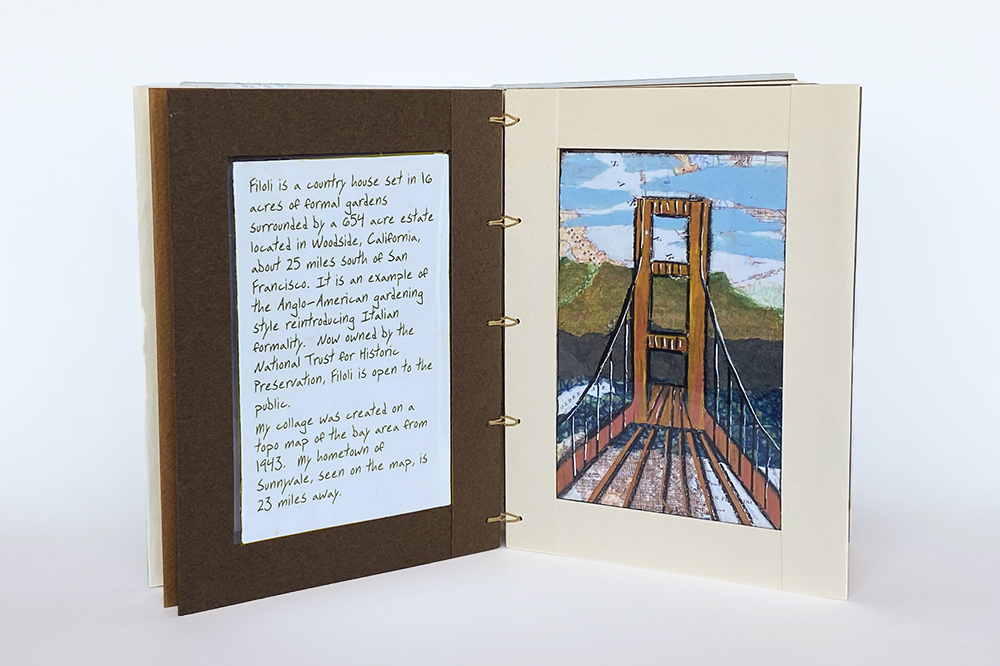 Filoli is a country house set in 16
acres of formal gardens
surrounded by a 654 acre estate
located in Woodside, California,
about 25 miles south of San
Francisco. It is an example of
the Anglo-American gardening
style reintroducing Italian
formality. Now owned by the
National Trust for Historic
Preservation, Filoli is open to the
public.
My collage was created on a
topo map of the bay area from
1943. My hometown of
Sunnyvale, seen on the map, is
23 miles away.